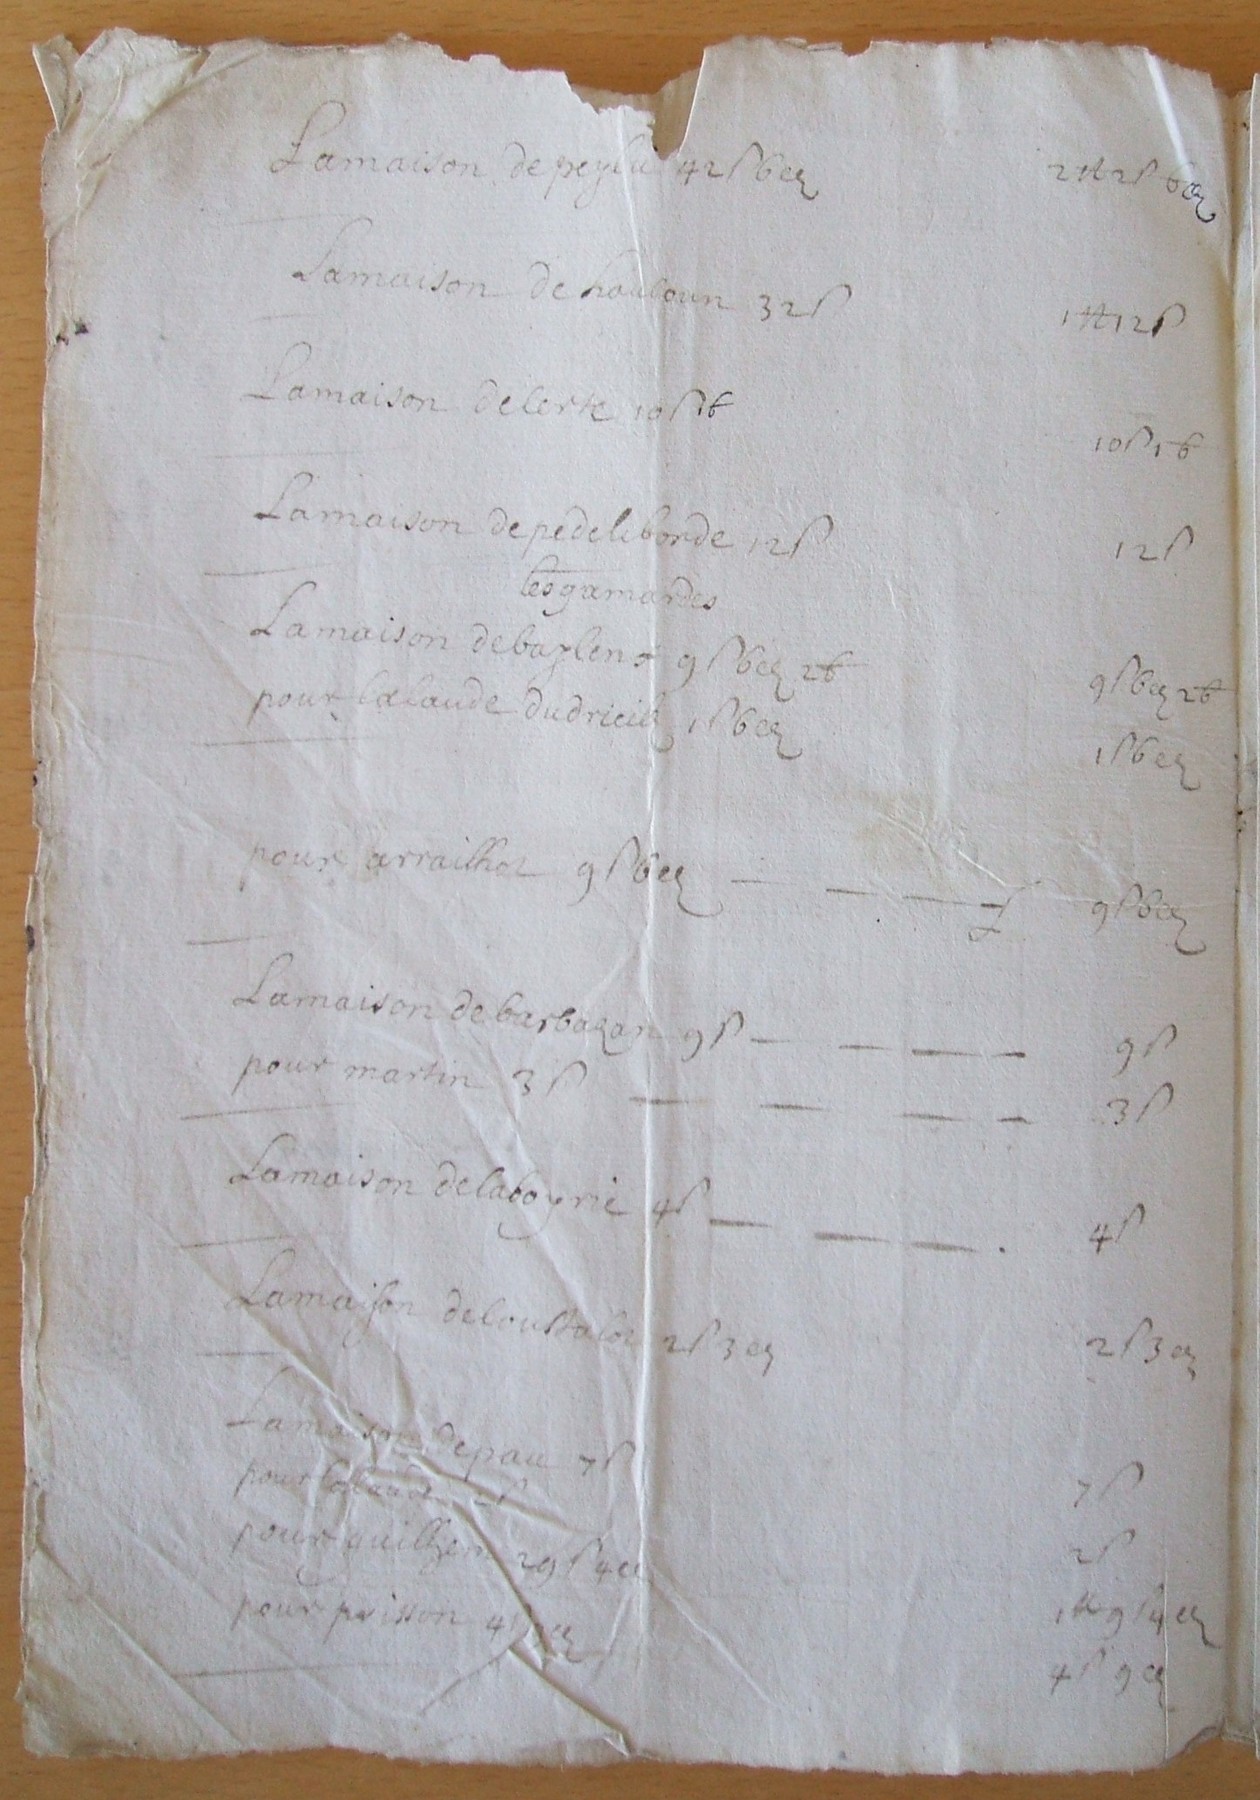 Lamaison de peylu 42 s 6 d 2 tt 2 s 6 d
Lamaison de houloun 32 s 1 tt 12 s
Lamaison de lerte 10 s 1 b 10 s 1 b
Lamaison de pedeleborde 12 s 12 s
les gamardes
Lamaison de baylens 9 s 6 d 2 b 9 s 6 d 2 b
pour lalaude 1 s 6 d 1 s 6 d
pour arrailhot 9 s 6 d 9 s 6 d
Lamaison de barbazan 9 s 9 s
pour martin 3 s 3 s
Lamaison de laboyrie 4 s 4 s
Lamaison de loustalot 2 s 3 d 2 s 3 d
Lamaison de pau 7 s 7 s
pour lalaude 2 s 2 s
pour guilhem 29 s 4 d 1 tt 9 s 4 d
pour prisson 4 s 9 d 4 s 9 d